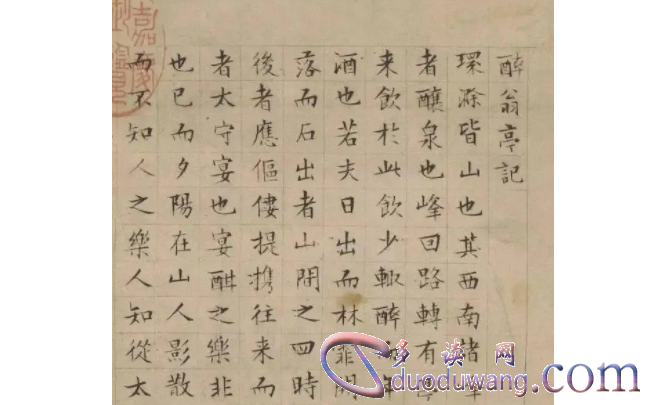 醉翁亭記
環滁皆山也其西南諸
者釀泉也峰回路轉有亭
来飲於此飲少輒醉年
酒也若夫日出而林霏開
落而石出者山間之四時
後者應傴僂提携往来而
者太守宴也宴酣之樂非
也已而夕陽在山人影散
而不知人之樂人知從太
嘉慶
多读网
duoduwang.com